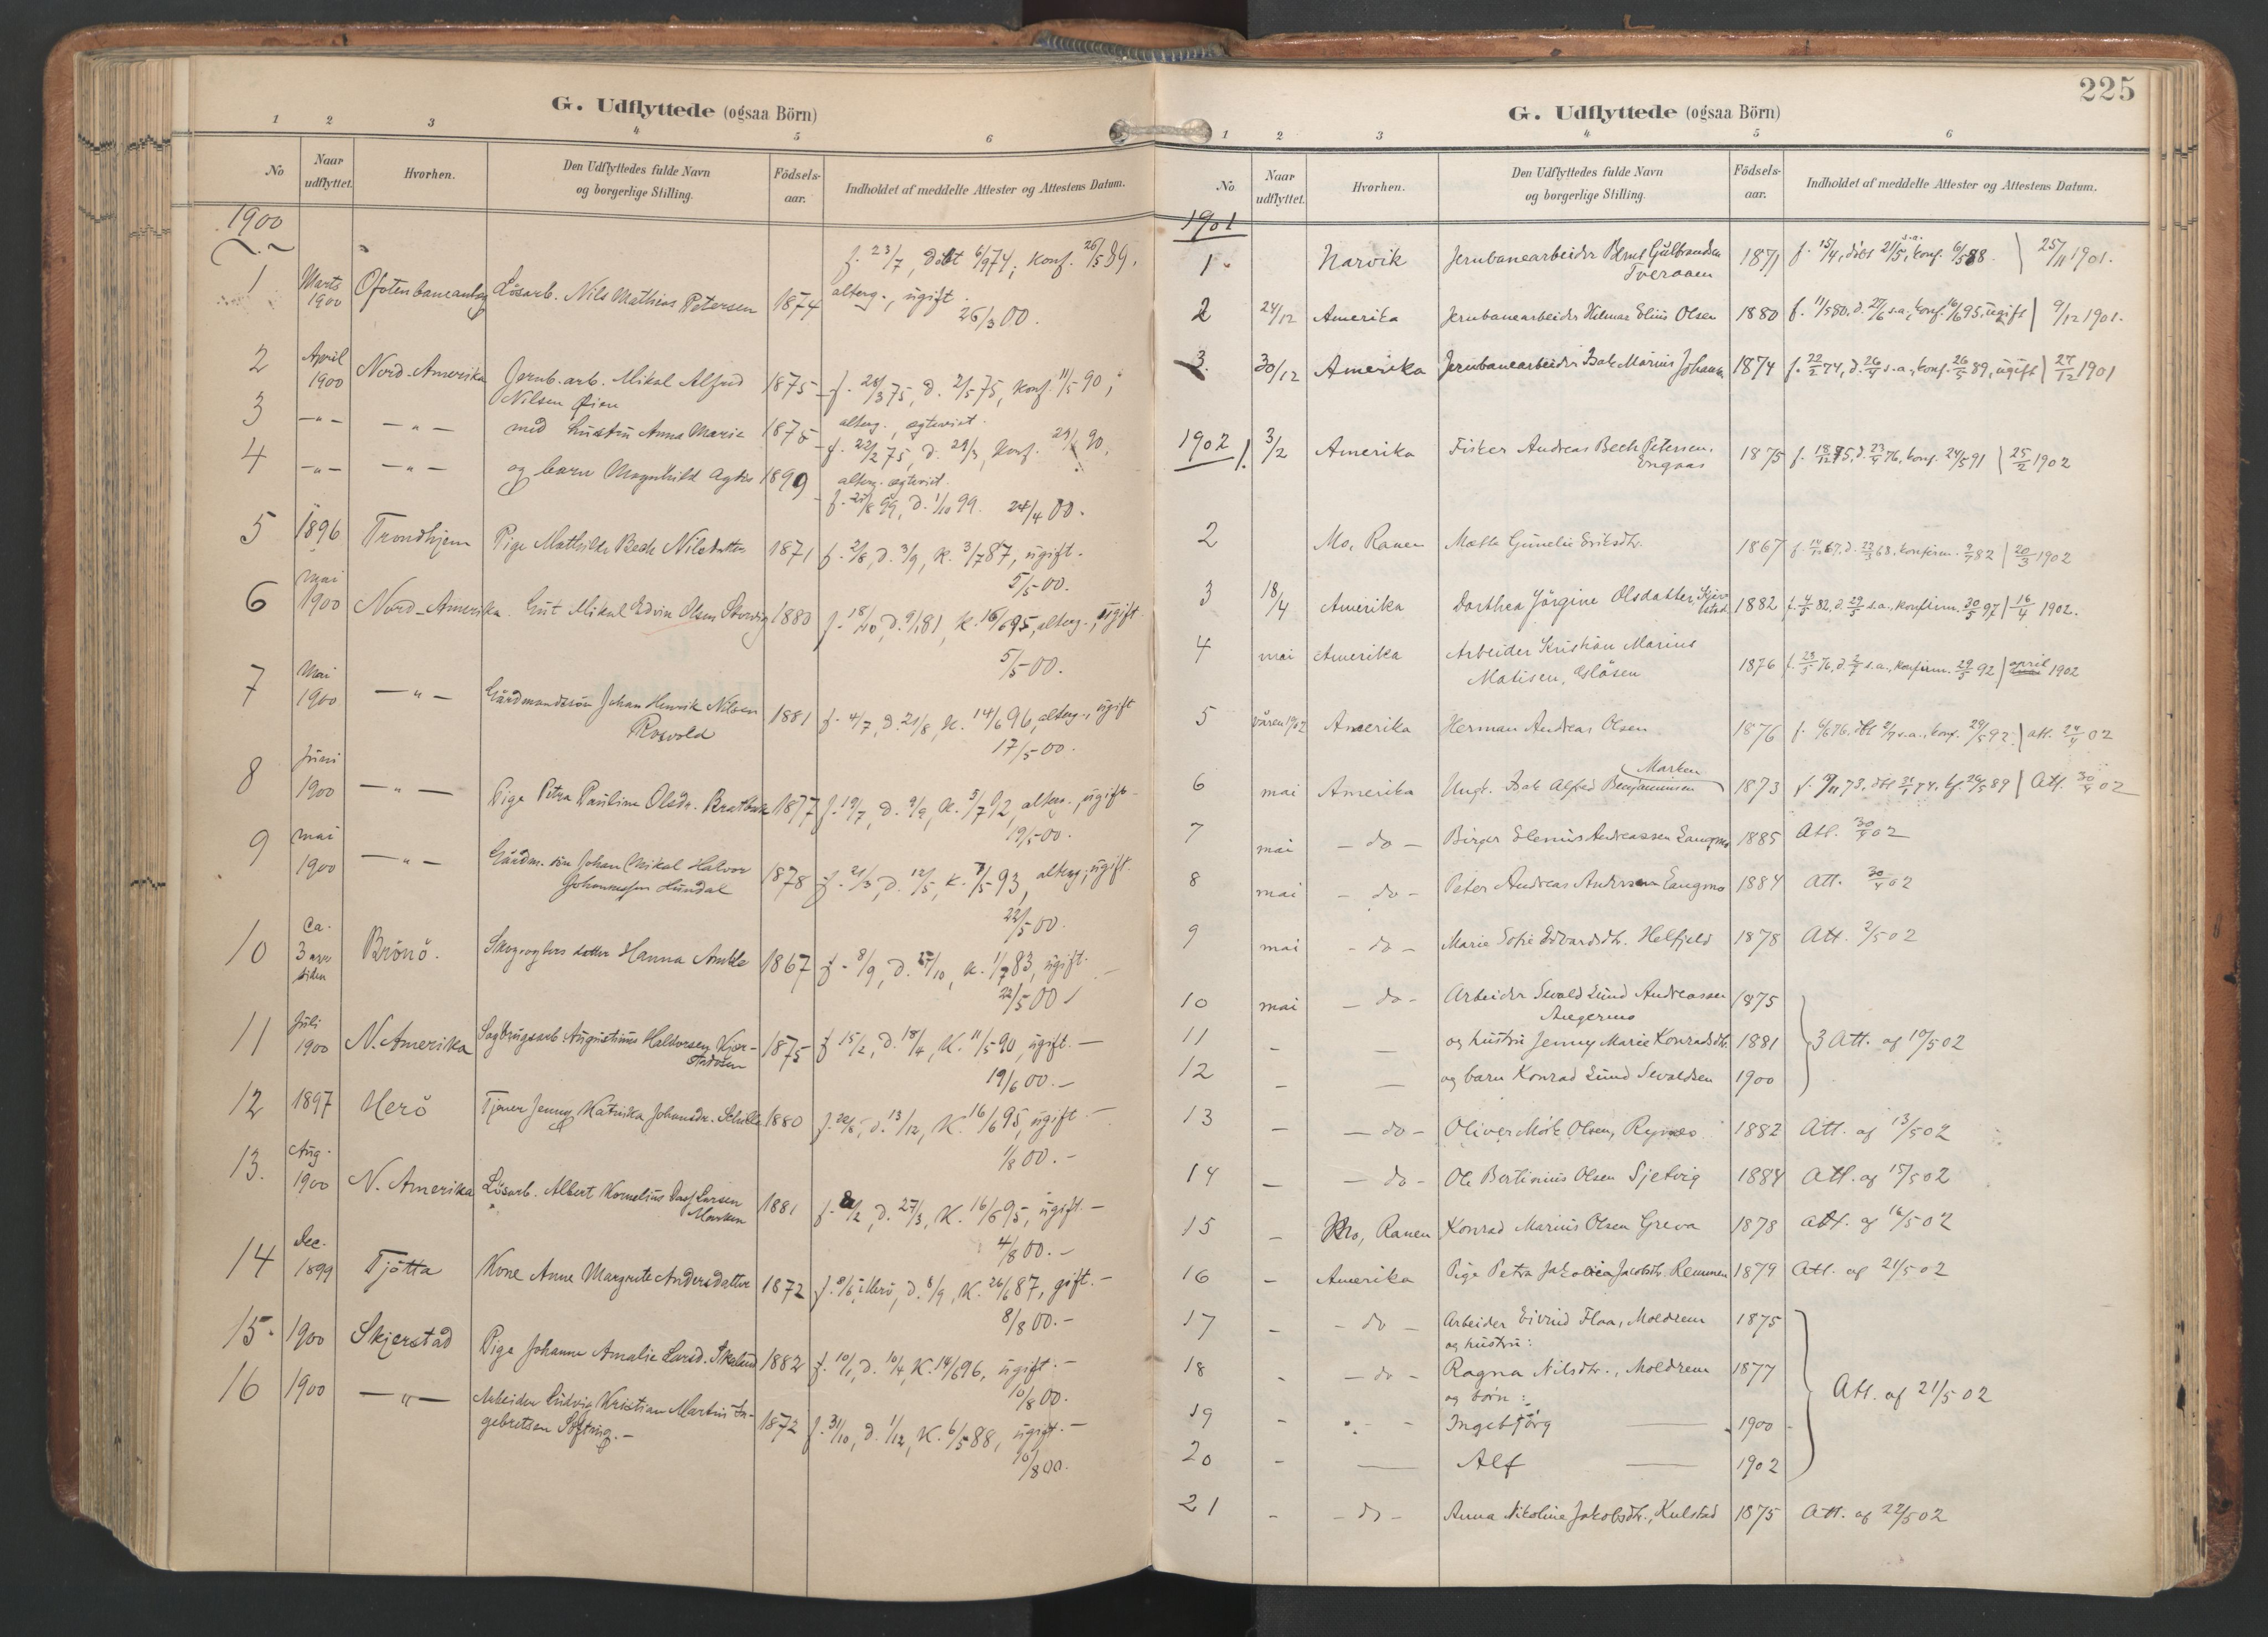 G. Udflyttede (ogsaa Börn)
1 2 3 4 5 6
No Naar udflyttet. Hvorhen. Den Udflyttedes fulde Navn og borgerlige Stilling. Födsels-aar. Indholdet af meddelte Attester og Attestens Datum.
1900
1 Marts 1900 Ofotenbaneanlæg Lösarb. Nils Mathias Petersen 1874 f. 23/7, döbt 6/9 74, konf. 26/5 89,
alterg., ugift. 26/3 00.
2 April 1900 Nord-Amerika Jernb.arb. Mikal Alfred 1875 f. 28/3 75, d. 2/5 75, konf. 11/5 90,
Nilsen Øien alterg., 
3 -"- -"- med hustru Anna Marie 1875 f. 22/2 75, d. 29/3, konf. 90,
alterg.
4 -"- -"- og barn Magnhild Agnes 1899 f. 25/8 99, d. 1/10 99. 24/4 00.
5 1896 Trondhjem Pige Mathilde Bech Nilsdatter 1871 f. 2/8, d. 3/9, k. 3/7 87, ugift.
5/5 00.
6 mai 1900 Nord-Amerika. Gut Mikal Edvin Olsen 1880 f. 18/10, d. 9/1 81, k. 16/6 95, alterg., ugift.
5/5 00.
7 Mai 1900 -"- Gårdmandssön Johan Henrik Nilsen 1881 f. 4/7, d. 21/8, k. 14/6 96, alterg., ugift
Rosvold 17/5 00.
8 Juni 1900 -"- Pige Petra Pauline Olsdr. 1877 f. 19/7, d. 9/9, k. 5/7 92, alterg., ugift.
19/5 00.
9 mai 1900 -"- Gårdm. sön Johan Mikal Halvor 1878 f. 21/3, d. 12/5, k. 7/5 93, alterg., ugift.
Johannessen Hundal 22/5 00.
10 Ca. 3 aar siden Brönö. Skogvogters datter Hanna 1867 f. 8/9, d. 27/10, k. 1/7 83, ugift.
22/5 00
11 Juli 1900 N. Amerika Sagbrugsarb Augustinus Haldorsen 1875 f. 15/2, d. 18/4, K. 11/5 90, ugift. -
19/6 00. -
12 1897 Herö Tjener Jenny Katrika Johansdr. 1880 f. 22/8, d. 13/12, K. 16/6 95, ugift -
1/8 00. -
13. Aug. 1900 N. Amerika Lösarb. Albert Kornelius Larsen 1881 f. /2, d. 27/3, K. 16/6 95, ugift. -
Marken 4/8 00. -
14 Dec. 1899 Tjötta Kone Anne Margrete Andersdatter 1872 f. 8/6 i Herö, d. 8/9, K. 26/6 87, gift. -
8/8 00. -
15. 1900 Skjerstad Pige Johanna Amalie Larsd. 1882 f. 10/1, d. 10/4, K. 14/6 96, ugift. -
10/8 00.
16 1900 -"- Arbeider Ludvig Kristian Martin In- 1872 f. 31/10, d. 1/12, K. 6/5 88, ugift. -
gebretsen Søfting. - 10/8 00.
225
G. Udflyttede (ogsaa Börn)
1 2 3 4 5 6
No Naar udflyttet. Hvorhen. Den Udflyttedes fulde Navn og borgerlige Stilling. Födsels-aar. Indholdet af meddelte Attester og Attestens Datum.
1901
1. Narvik Jernbanearbeider Bernt Gulbrandsen 1871 f. 15/4, döbt 21/5 s.a., konf. 6/5 88. 25/11 1901.
Tveraaen
2 24/12 Amerika Jernbanearbeider Hilmar Elius Olsen 1880 f. 11/5 80, d. 27/6 s.a., konf. 16/6 95, ugift 9/12 1901.
3. 30/12 Amerika Jernbanearbeider Isak Marius Johansen 1874 f. 22/2 74, d. 26/4 s.a., konf. 26/5 89, ugift 27/12 1901
1902 1. 3/2 Amerika Fisker Andreas Bech Petersen. 1875 f. 18/12 75, d. 23/4 76, konf. 24/5 91 25/2 1902
Engaas
2 Mo, Ranen Mætta Gunelie Eriksdtr. 1867 f. 14/12 67, d. 22/3 68, konfirm. 9/7 82 20/3 1902
3 18/4 Amerika Dorthea Jörgine Olsdatter, 1882 f. 4/3 82, d. 29/5 s.a., konfirm. 30/5 97 16/4 1902.
4 mai Amerika Arbeider Kristian Marius 1876 f. 23/5 76, d. 2/7 s.a., konfirm. 29/5 92 april 1902
Matisen,
5 våren 1902 Amerika Herman Andreas Olsen 1876 f. 6/6 76, döbt 2/7 s.a., konf. 29/5 92. att. 24/4 02
6 mai Amerika Ungk. Isak Alfred Benjaminsen 1873 f. /11 73, döbt 31/1 74, kf. 26/5 89 Att. 30/4 02
Marken
7 mai - do - Birger Elenius Andreassen Langmo 1885 Att. 30/4 02
8 mai - do - Peter Andreas Andersen Langmo 1884 Att. 30/4 02
9 mai - do - Marie Sofie Edvardsdtr. Helfjeld 1878 Att. 2/5 02
10 mai - do - Arbeider Sevald Lund Andreassen 1875
Angermo
11 - - og hustru Jenny Marie Konradsdtr. 1881 3 Att. af 10/5 02
12 - - og barn Konrad Lund Sevaldsen 1900
13 - - do - Oliver Mörk Olsen, Rynes 1882 Att. af 13/5 02
14 - - do - Ole Bertinius Olsen Sjetvig 1884 Att. af 15/5 02
15 - Mo, Ranen Konrad Marius Olsen Greva 1878 Att. af 16/5 02
16 - Amerika Pige Petra Jakobsdtr. Remmen 1879 Att. af 21/5 02
17 - - do - Arbeider Eivind Flaa, Moldrem 1875
og hustru:
18 - - do - Ragna Nilsdtr., Moldrem 1877 Att. af 21/5 02
og börn:
19 - Ingebjörg 1900
20 - Alf 1902
21 - - do - Anna Nikoline Jakobsdtr., Kulstad 1875 Att. af 22/5 02